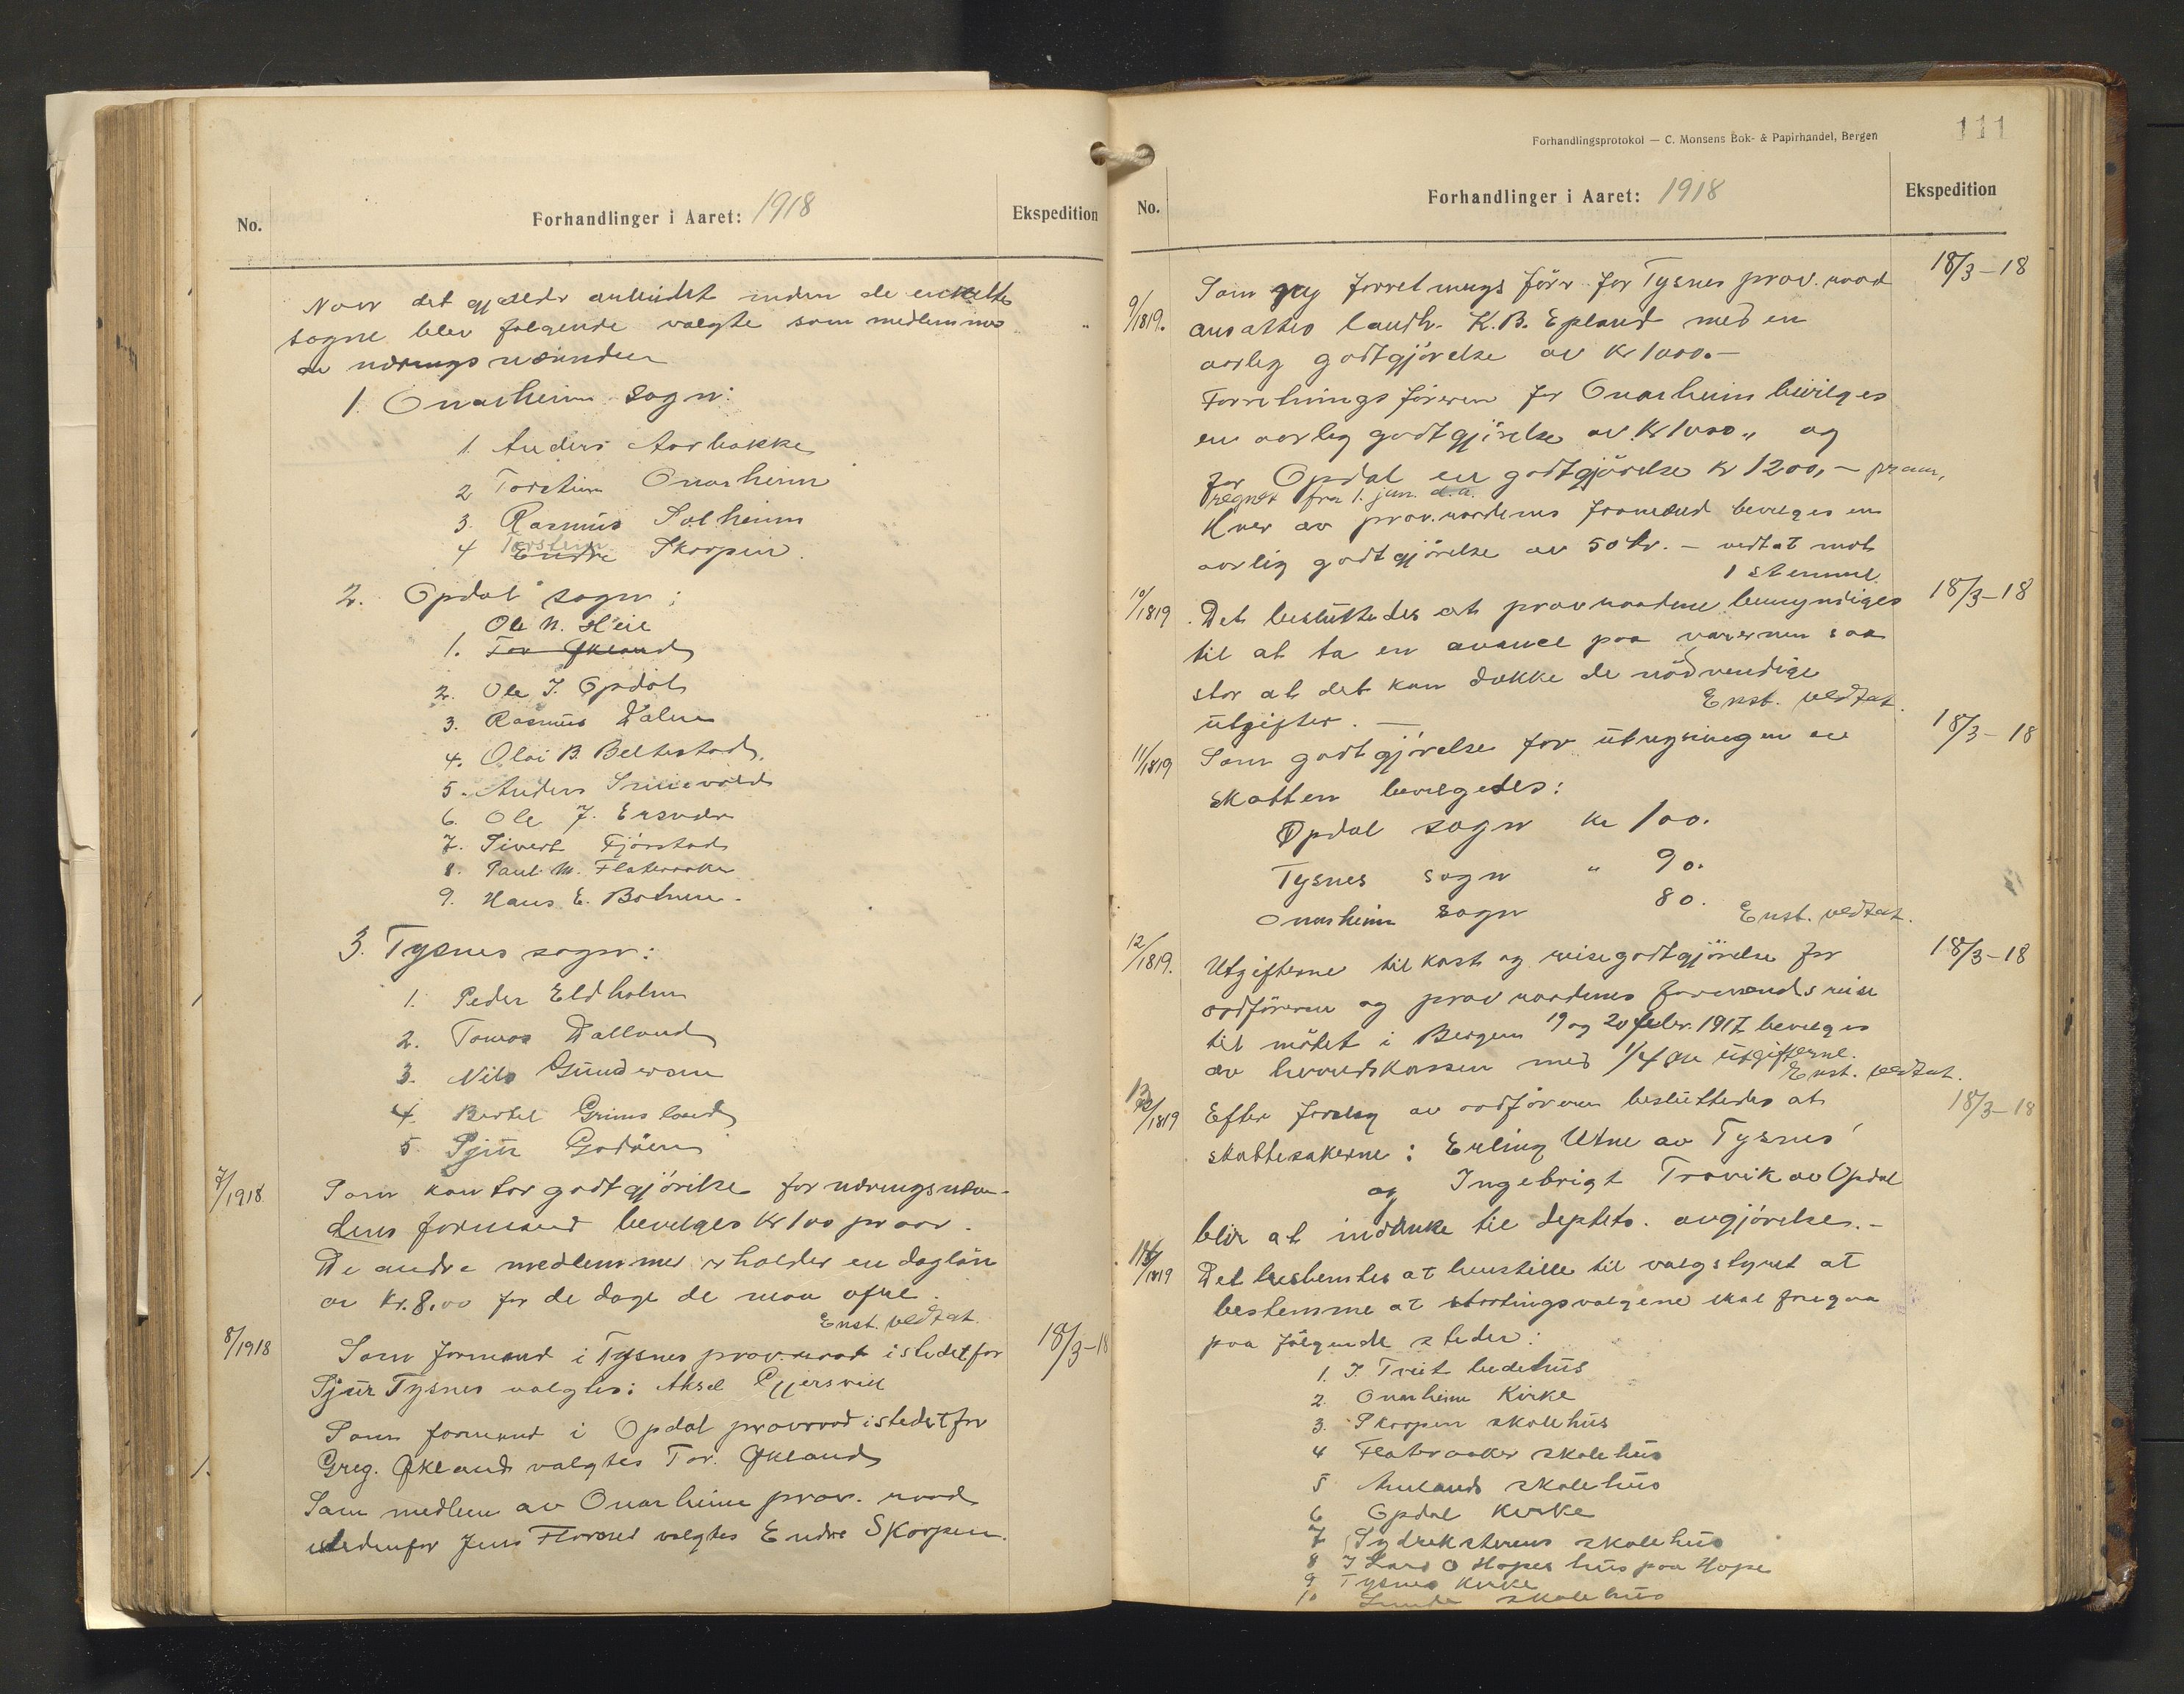 No.
Forhandlinger i Aaret: 1918
Ekspedition
Naar det gjælder arbeidet inden de enkelte
sogne blev følgende valgte som medlemmer
av nærings nævnden
1. Onarheim Sogn:
1. Anders Aarbakke
2 Torstein Onarheim
3. Rasmus Solheim
4 Torstein Endre Skorpen.
2. Opdal sogn:
Ole N. Heie
1. Tor Økland
2. Ole J. Opdal
3. Rasmus Dalen
4. Olai B. Beltestad.
5. Anders
6. Ole J. Ersvær
7. Sivert Fjørstad
8. Paul M. Flateraaker
9. Hans E. Botnen.
3. Tysnes sogn:
1. Peder Eldholm
2. Tomas Dalland
3. Nils Gundersen
4. Bertel Grimsland
5. Sjur Godøen
7/1918
Som kontorgodtgjørelse for næringsnævn-
dens formand bevilges kr 100 pr aar.
De andre medlemmer erholder en dagløn
av kr. 8,00 for de dage de maa ofre.
Enst. vedtat.
8/1918
18/3-18
Som formand i Tysnes prov.raad istedetfor
Sjur Tysnes valgtes: Aksel Gjersvik
Som formand i Opdal provraad istedetfor
Greg. Økland valgtes Tor. Økland
Som medlem av Onarheim prov. raad
istedenfor Jens valgtes Endre Skorpen.
Forhandlingsprotokol — C. Monsens Bok- & Papirhandel, Bergen
111
No.
Forhandlinger i Aaret: 1918
Ekspedition
9/1819.
18/3-18
Som ny forretnings fører for Tysnes prov. raad
ansattes landh. K. B. Epland med en
aarlig godtgjørelse av kr 1000.-
Forretningsføreren for Onarheim bevilges
en aarlig godtgjørelse av kr 1000,, og
for Opdal en godtgjørelse kr 1200,- pr aar,
regnet fra 1. jan. d.a.
Hver av prov.raadenes formænd bevilges en
aarlig godtgjørelse av 50 kr. - vedtat mot
1 stemme.
10/1819
18/3-18
Det besluttedes at provraadene bemyndiges
til at ta en avance paa varerne saa
stor at det kan dække de nødvendige
utgifter. —
Enst. vedtat.
11/1819
18/3-18
Som godtgjørelse for utregningen av
skatten bevilgedes:
Opdal sogn kr 100.
Tysnes sogn " 90.
Onarheim sogn 80.
Enst. vedtat.
12/1819.
18/3-18
Utgifterne til kost og reisegodtgjørelse for
ordføreren og provraadenes formænds reise
til møtet i Bergen 19 og 20 febr. 1917 bevilges
av herredskassen med 1/4 av utgifterne.
Enst. vedtat.
13/1819
18/3-18
Efter forslag av ordføreren besluttedes at
skattesakerne: Erling Utne av Tysnes
og Ingebrigt Travik av Opdal
blir at indanke til deptets. avgjørelse.-
14/1819
Det bestemtes at henstille til valgstyret at
bestemme at stortingsvalgene skal foregaa
paa følgende steder:
1. I Treit bedehus
2. Onarheim Kirke
3. Skorpen skolehus
4 Flateraaker skolehus
5 Amlands skolehus
6 Opdal Kirke
7 skolehus
8 I Lars O Hopes hus paa Hope
9 Tysnes Kirke
10 Lunde skolehus